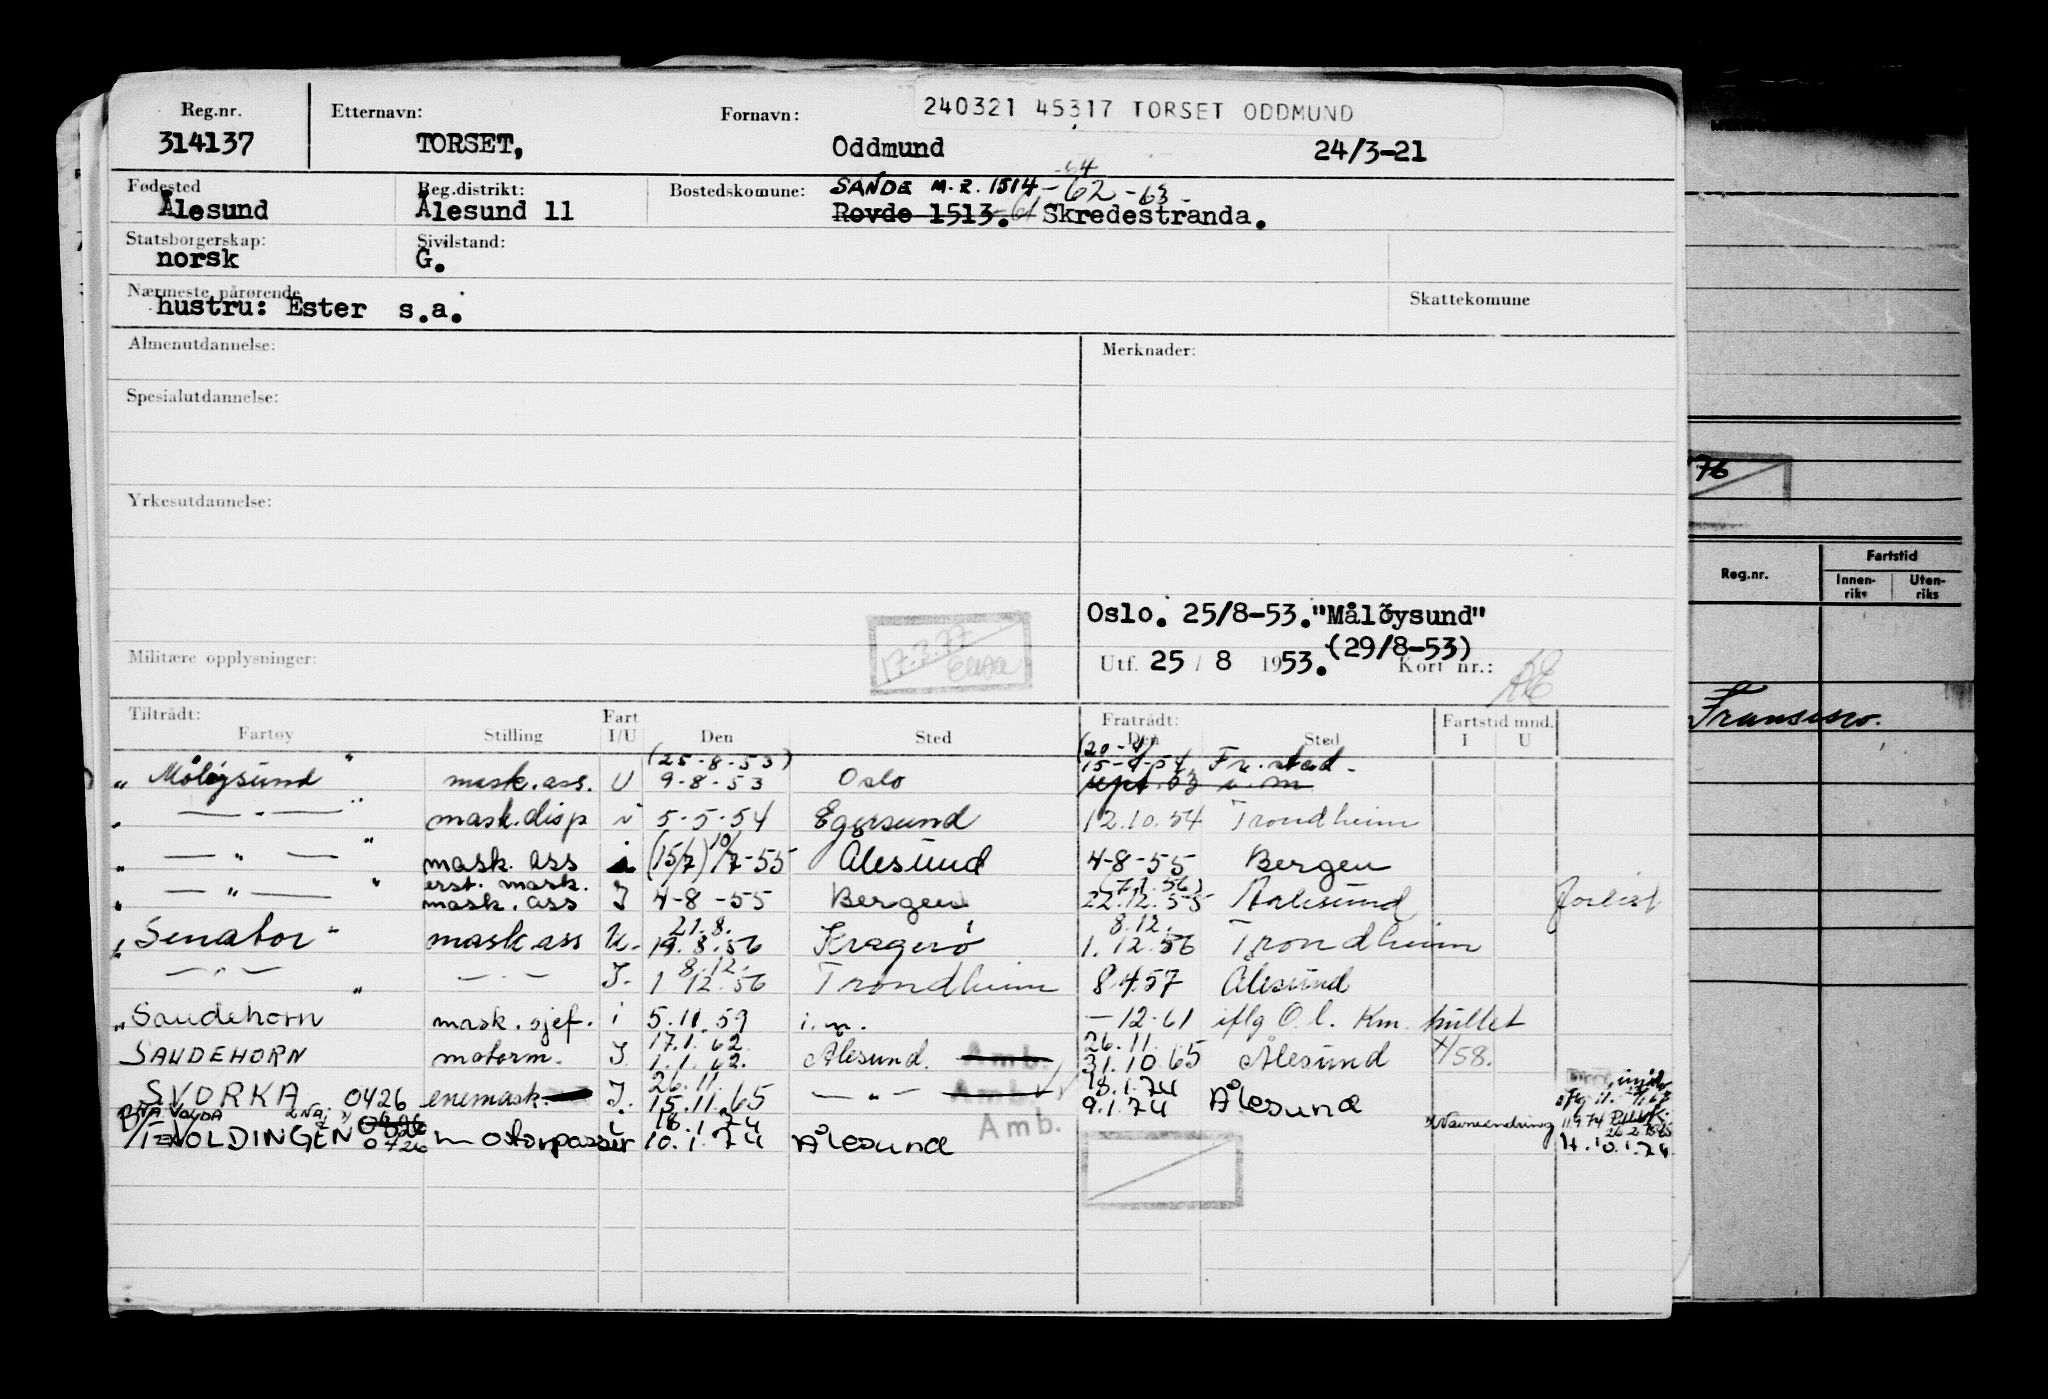 Reg.nr. Etternavn: Fornavn: 240321 45317 TORSET ODDMUND
314137 TORSET, Oddmund 24/3-21
Fødested Reg.distrikt: Bostedskomune: SANDE M.R. 1514 -62 -63 -64
Ålesund Ålesund 11 Rovde 1513. -61 Skredestranda.
Statsborgerskap: Sivilstand:
norsk G.
Nærmeste pårørende Skattekomune
hustru: Ester s.a.
Almenutdannelse: Merknader:
Spesialutdannelse:
Yrkesutdannelse:
Oslo. 25/8-53. "Målöysund"
(29/8-53)
Militære opplysninger: 17.3.77 Utf. 25 / 8 1953. Kort nr.:
Tiltrådt: Fart Fratrådt: Fartstid mnd.
Fartøy Stilling I/U Den Sted Den Sted I U
(25-8-53) (20-4)
" Måløysund " mask.ass. U 9-8-53 Oslo 15-4-54 Fr.stad.
sept. 53 u.m
" — " — " mask.disp i 5-5-54 Egersund 12.10.54 Trondheim
" — " — " mask. ass i (15/7) 10/7-55 Ålesund 4-8-55 Bergen
erst. mask. (7.1.56)
" — " — " mask. ass I 4-8-55 Bergen 22.12.55 Aalesund forlist
21.8. 8.12.
" Senator " mask ass U. 19.8.56 Kragerø 1.12.56 Trondheim
8.12.
— " — " — " — I. 1 12.56 Trondheim 8 4.57 Ålesund
" Sandehorn mask.sjef. i 5.11.59 i.n. — 12-61 iflg O.l. Km. hullet
17.1.62. 26.11.
SANDEHORN motorm. I. 1.1.62. Ålesund. Amb. 31.10 65 Ålesund x/58.
26.11. 18.1.74
SVORKA 0426 enemask. I. 15.11.65 — " — Amb. 9.1.74 Ålesund
18.1.74 Amb. x) Navneendring 11.9.74
B/F VOLDINGEN 0726 motorpasser i 10.1.74 Ålesund 10.1.74
76
Reg.nr. Fartstid
Innen-riks Uten-riks
Fransisco.